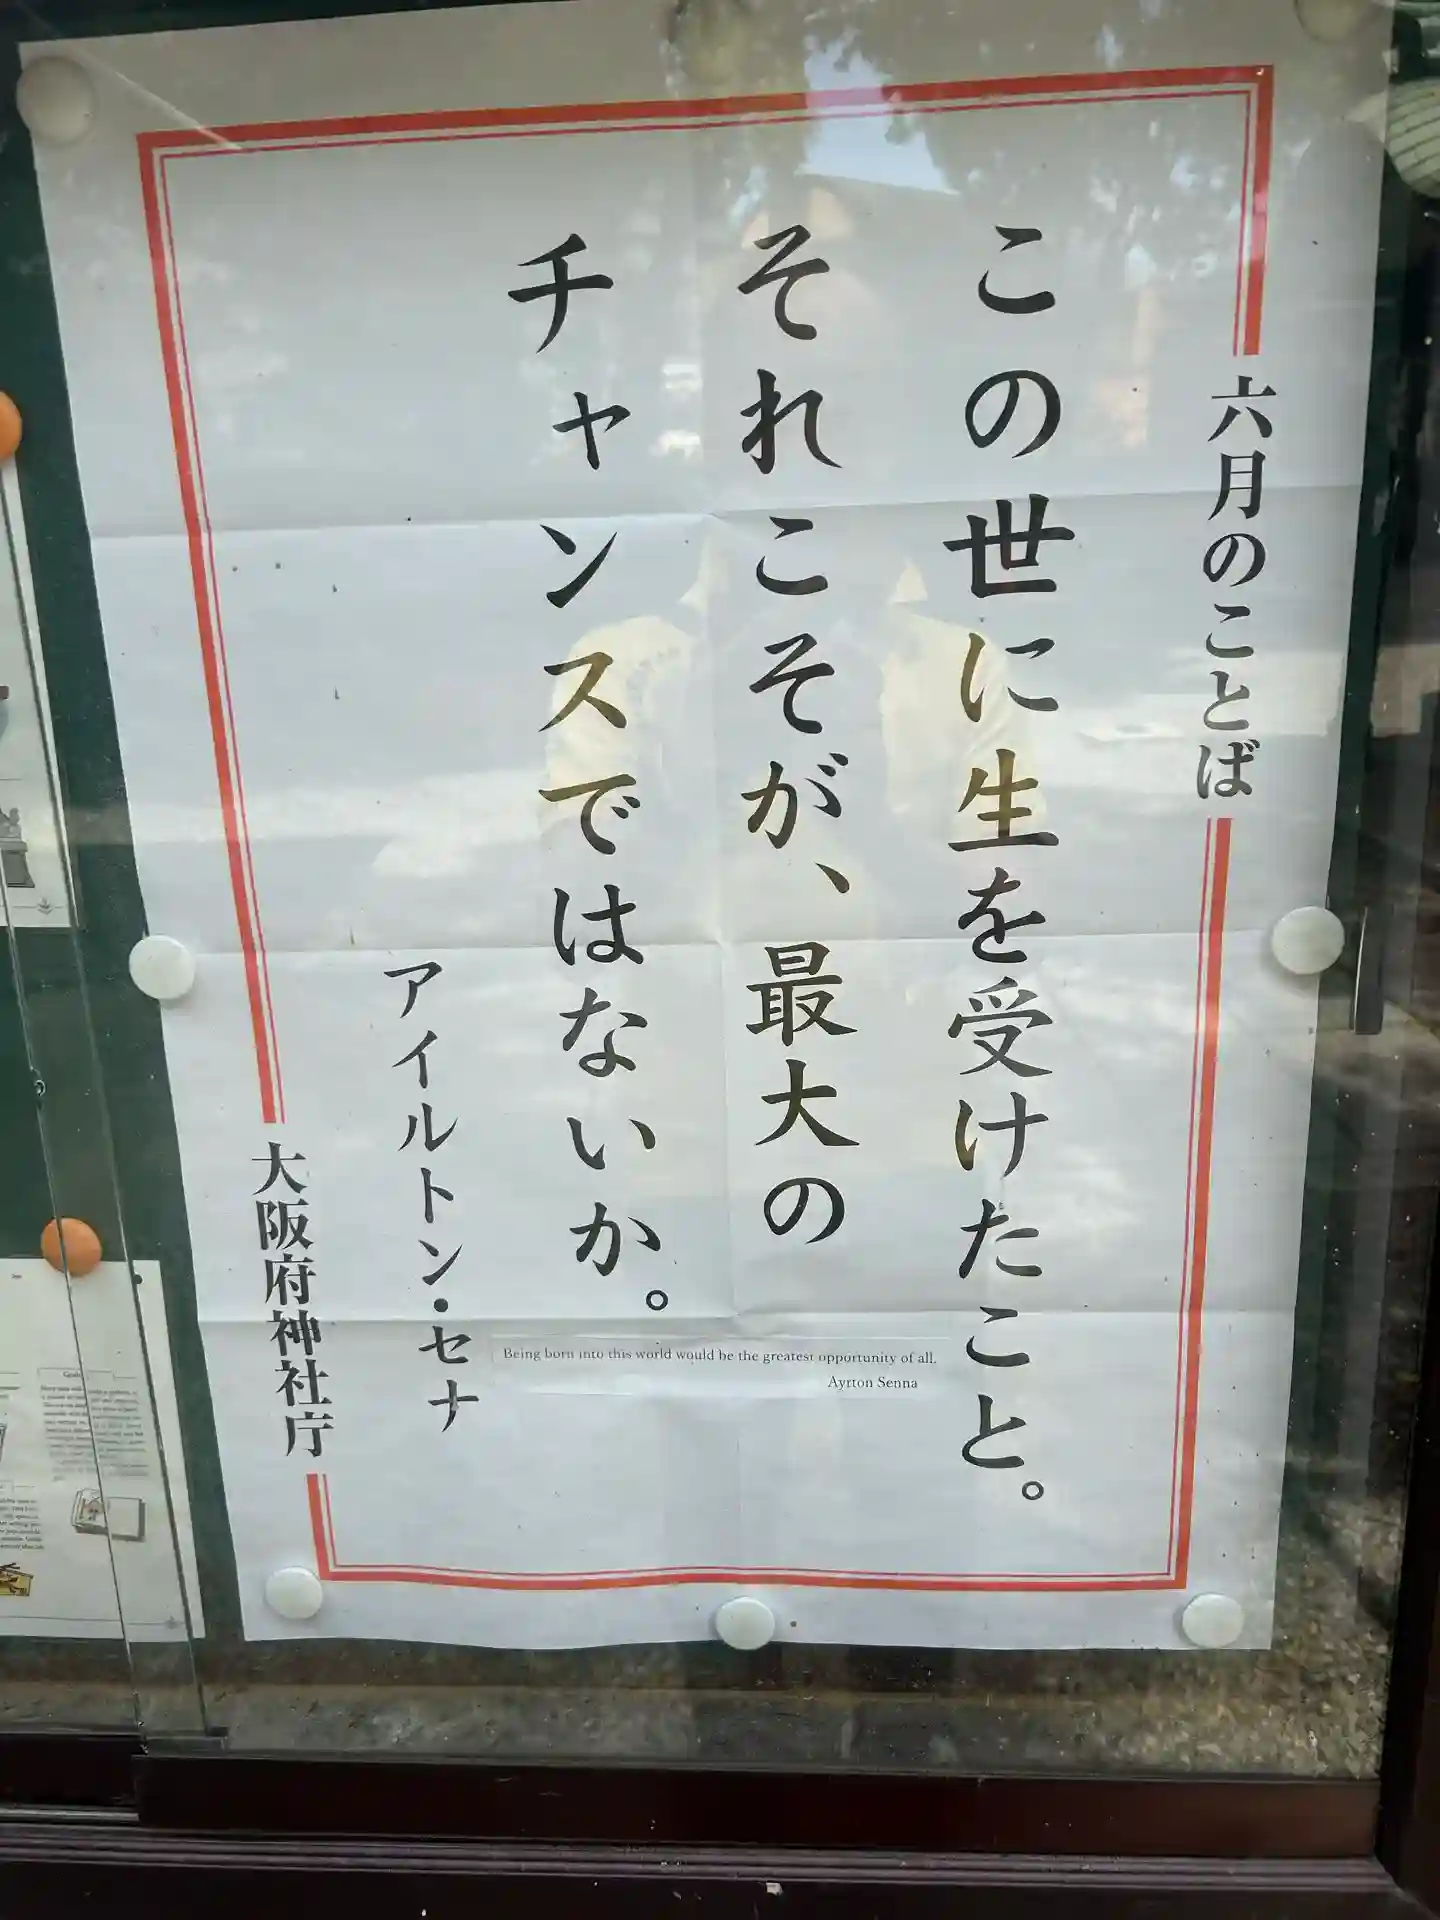 六月のことば
この世に生を受けたこと。
それこそが、最大の
チャンスではないか。
アイルトン・セナ
Being born into this world would be the greatest opportunity of all.
Ayrton Senna
大阪府神社庁